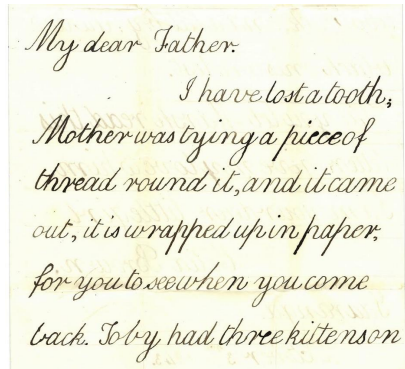 My dear Father.
I have lost a tooth,
Mother was tying a piece of
thread round it, and it came
out, it is wrapped up in paper,
for you to see when you come
back. Toby had three kittens on